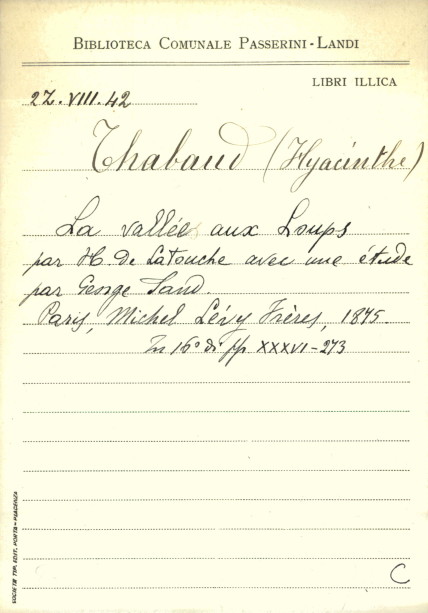 BIBLIOTECA COMUNALE PASSERINI-LANDI
LIBRI ILLICA
27.VIII.42
Thabaud (Hyacinthe)
La vallée aux Loups
par H. De Latouche avec une étude
par George Sand.
Paris, Michel Lévy Frères, 1875.
In 16° di pp. XXXVI-273
SOCIETÀ TIP. EDIT. PORTA-PIACENZA
C